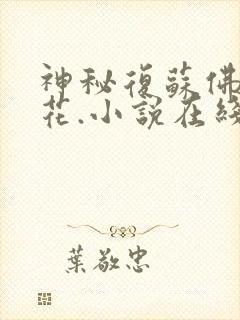 神秘復蘇佛
花.小說在綫
葉敬忠